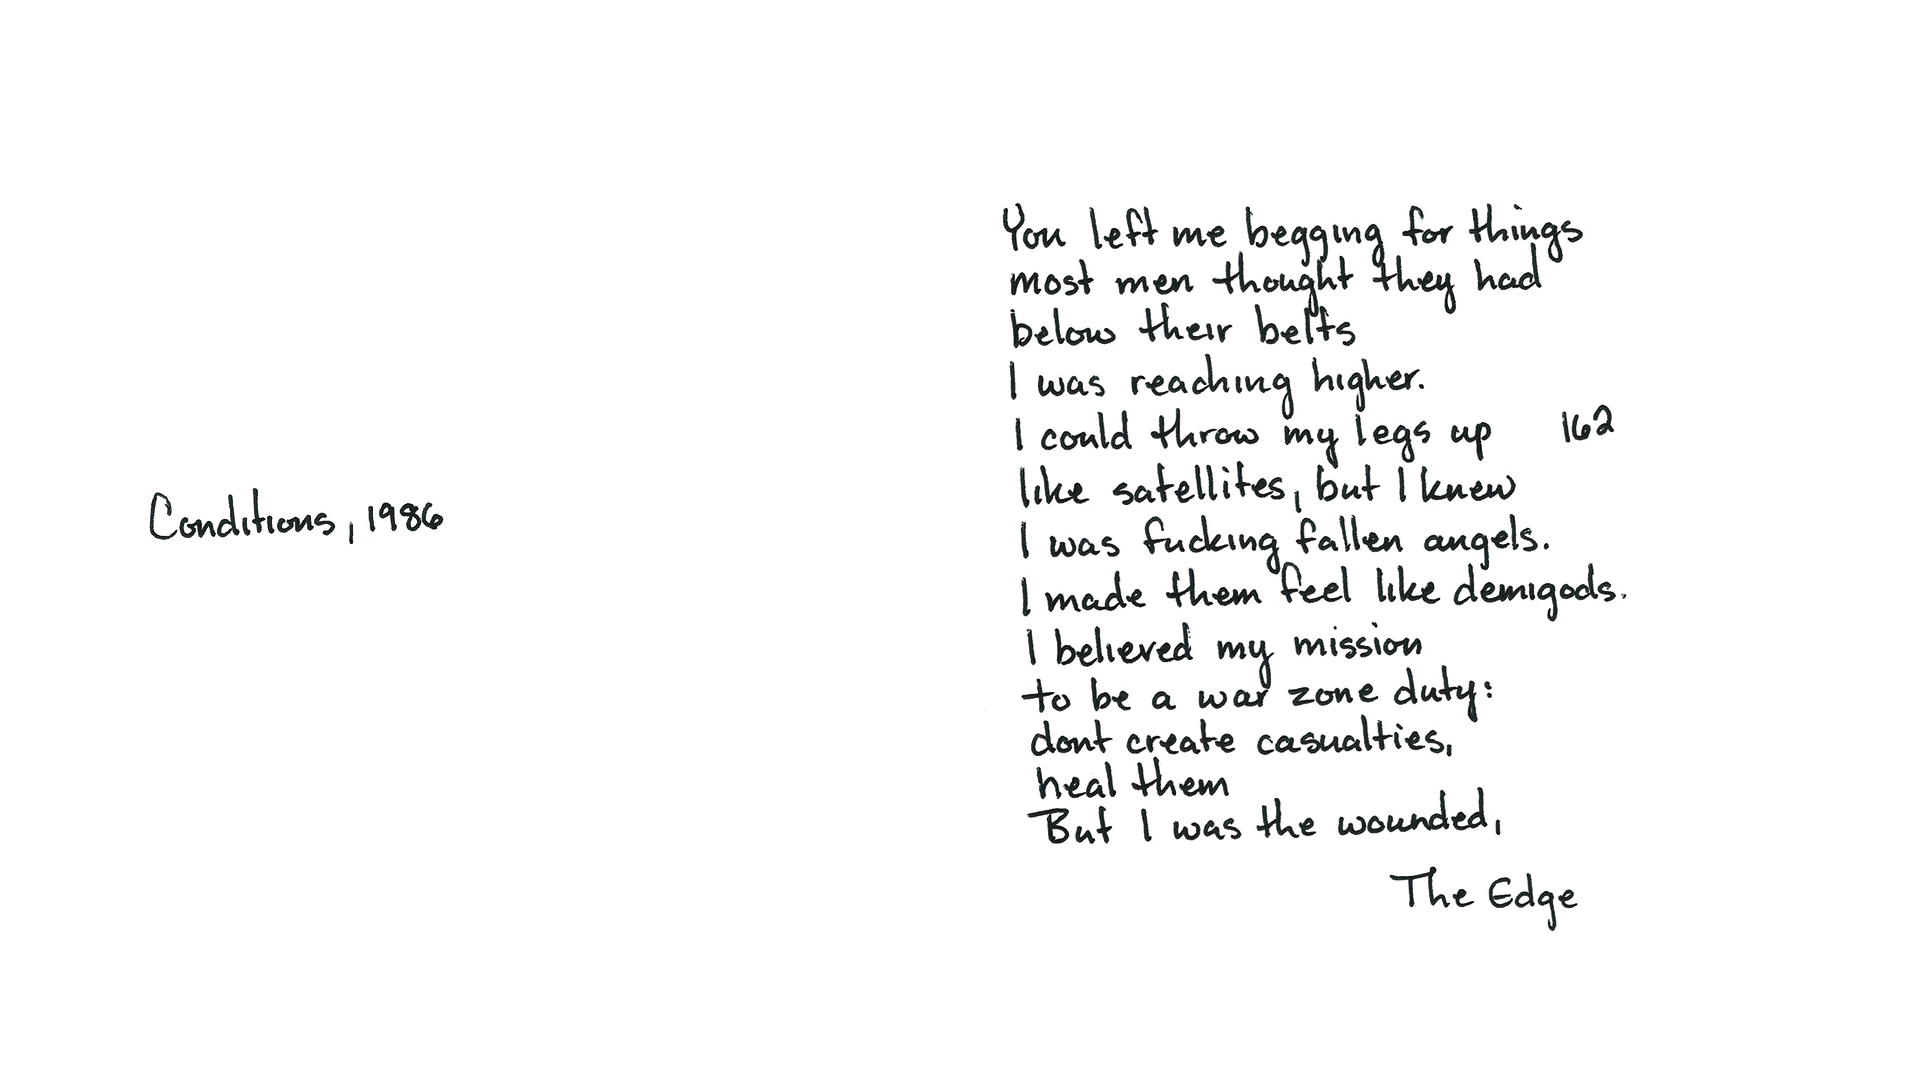 Conditions, 1986
You left me begging for things
most men thought they had
below their belts
I was reaching higher.
I could throw my legs up 162
like satellites, but I knew
I was fucking fallen angels.
I made them feel like demigods.
I believed my mission
to be a war zone duty:
dont create casualties,
heal them
But I was the wounded,
The Edge